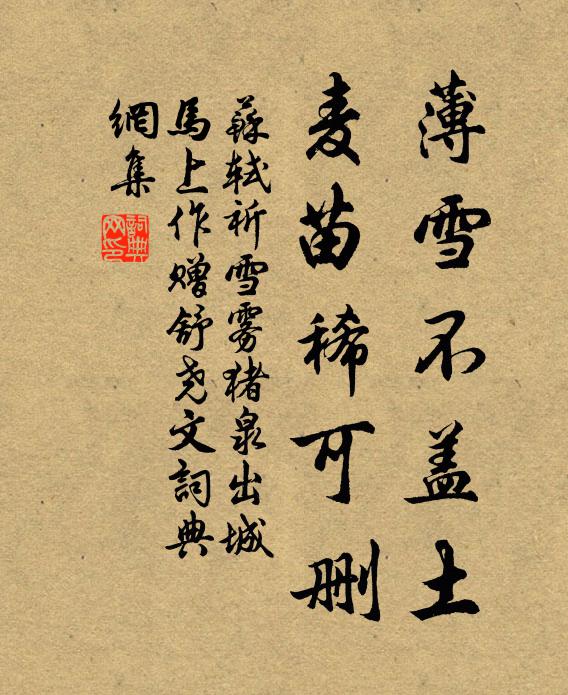 薄雪不盖土
麦苗稀可删
蘇轼祈雪雾猪泉出城
馬上作赠舒尧文詞典
網集
詞典网印